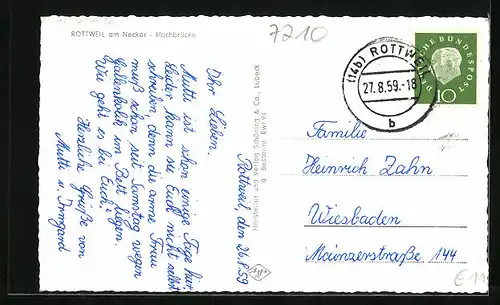 ROTTWEIL am Neckar - Hochbrücke
7210
Rottweil, den 26.8.59
Ihr Lieben.
Mutti ist schon einige Tage hier
leider kann sie Euch nicht selbst
schreiben, denn die arme Frau
muß schon seit Samstag wegen
Gallenkolik im Bett liegen.
Wie geht es bei Euch?
Herzliche Grüße von
Mutti u. Irmgard
Hersteller und Verlag Schöning & Co., Lübeck
(14b) ROTTWEIL
27.8.59.-18
b
DEUTSCHE BUNDESPOST
10
Familie
Heinrich Zahn
Wiesbaden
Mainzerstraße 144